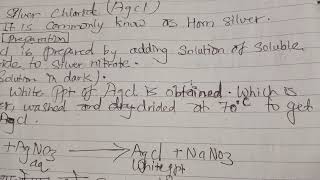 Silver Chloride (AgCl)
It is Commonly know as Horn Silver.
Preparation
Cl is prepared by adding Solution of Soluble
ride to Silver nitrate.
Solution in dark).
White ppt of AgCl is obtained. Which is
washed and drided at 70°C to get
AgCl.
+ AgNO3 → AgCl + NaNO3
aq White ppt